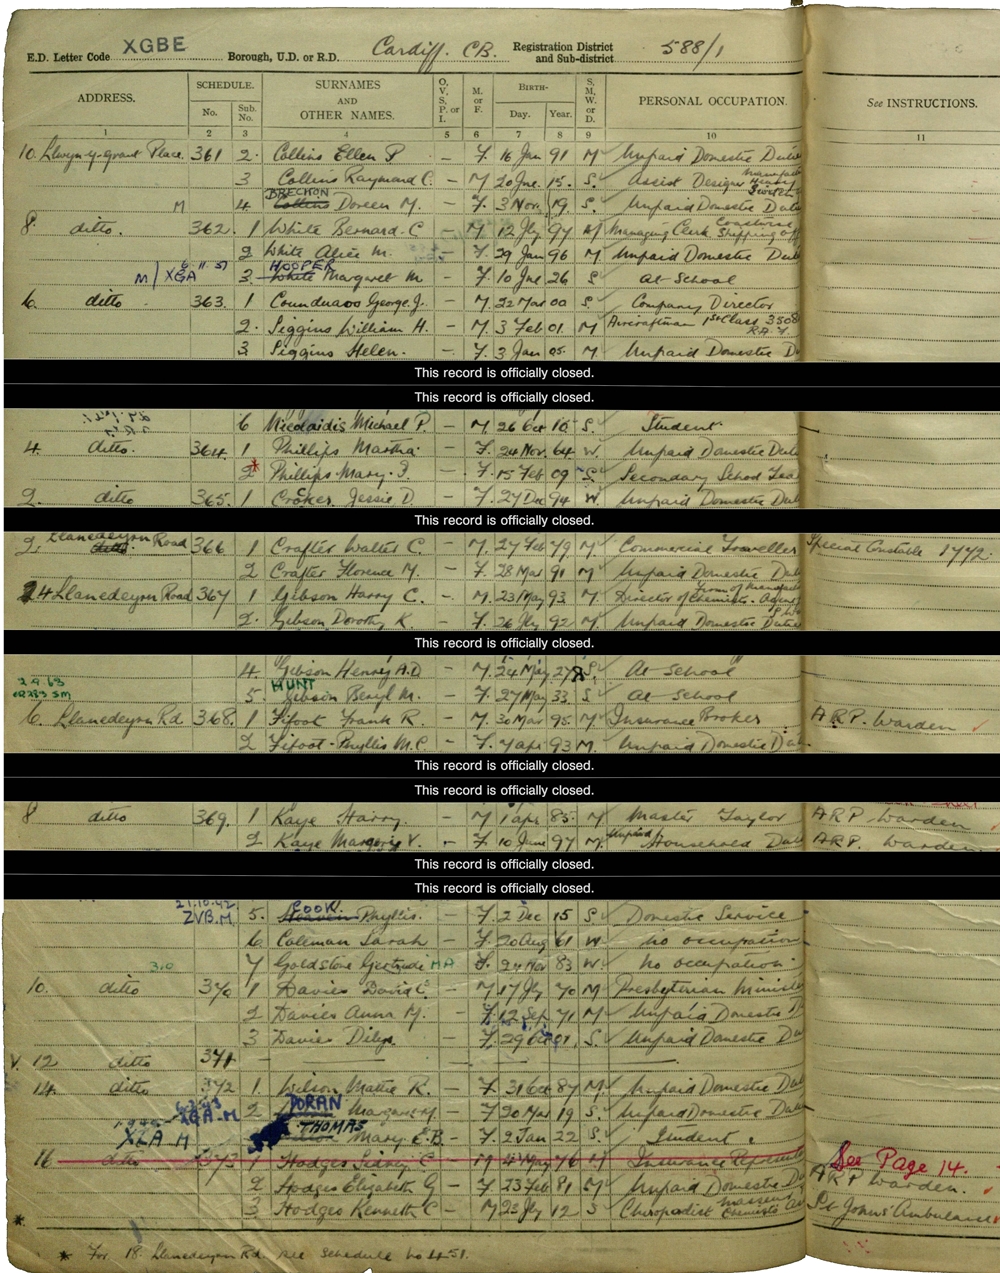 E.D. Letter Code XGBE Borough, U.D. or R.D. Cardiff. CB. Registration District and Sub-district 588/1
ADDRESS. SCHEDULE. No. Sub. No. SURNAMES AND OTHER NAMES. O, V, S, P, or I. M. or F. BIRTH- Day. Year. S, M, W, or D. PERSONAL OCCUPATION. See INSTRUCTIONS.
1 2 3 4 5 6 7 8 9 10 11
10. Llwyn-y-Grant Place. 361 2. Collins Ellen P – F. 16 Jan 91 M Unpaid Domestic
3 Collins Raymond C. – M 20 Jne. 15. S. Assist Designer
M 4. BRECHON Collins Doreen M. – F. 3 Nov. 19 S. Unpaid Domestic
8. ditto. 362. 1 White Bernard. C – M 12 Jly 97 M Managing Clerk Coastwise Shipping
2 White Alice M. – F. 29 Jan 96 M Unpaid Domestic
M/XGA 6.11.51 3. HOOPER White Margaret M – F. 10 Jne 26 S At School
6. ditto 363. 1 George. J. – M. 22 Mar 00 S Company Director
2. Siggins William H. – M. 3 Feb 01. M Aircraftman 1st Class 3508 R.A.F.
3. Siggins Helen. – F. 3 Jan 05. M Unpaid Domestic
This record is officially closed.
This record is officially closed.
6 Nicolaidis Michael P. – M. 26 Oct 16 S. Student
4. ditto. 364. 1 Phillips Martha – F. 24 Nov. 64 W. Unpaid Domestic
2* Phillips Mary. I. – F. 15 Feb 09 S. Secondary School
2. ditto 365. 1 Croker Jessie D – F. 27 Dec 94 W Unpaid Domestic
This record is officially closed.
2. Llanedeyrn Road 366 1 Crafter Walter C. – M. 27 Feb 79 M. Commercial Traveller Special Constable 1772.
2 Crafter Florence M. – F. 28 Mar 91 M Unpaid Domestic
4 Llanedeyrn Road 367 1 Gibson Harry C. – M. 23 May 93. M. Director of Chemists
2. Gibson Dorothy K. – F. 26 Jly 92 M. Unpaid Domestic
This record is officially closed.
4. Gibson Henry A.D – M. 24 May 27 S. At School
2.9.63 5. HUNT Gibson Beryl M. – F. 27 May 33. S At School
6. Llanedeyrn Rd 368. 1 Fifoot Frank R. – M. 30 Mar 95. M Insurance Broker A.R.P. Warden
2 Fifoot Phyllis M.C. – F. 7 Apr 93 M. Unpaid Domestic
This record is officially closed.
This record is officially closed.
8 ditto 369. 1 Kaye Harry. – M 1 Apr 85. M Master Taylor A.R.P. Warden
2 Kaye Margerie V. – F. 10 June 97 M. Unpaid Household A.R.P. Warden
This record is officially closed.
This record is officially closed.
21.10.42 ZVB.M 5. COOK Phyllis. – F. 2 Dec 15 S. Domestic Service
6. Coleman Sarah – F. 20 Aug 61 W No occupation
7 Goldstone Gertrude – F. 24 Nov 83 W. No occupation
10. ditto 370 1 Davies David C. – M 17 Jly 70 M Presbyterian Minister
2 Davies Anna M. – F. 12 Sep 71 M Unpaid Domestic
3 Davies Dilys – F. 29 S. Unpaid Domestic
V. 12 ditto 371 – – –
14. ditto 372 1 Wilson Mattie R. – F. 31 Oct 87 M. Unpaid Domestic
2 DORAN Margaret M. – F. 20 Mar 19 S. Unpaid Domestic
XGA M 3 THOMAS Mary E.B. – F. 2 Jan 22 S. Student.
16 ditto 373 1 Hodges Sidney C – M 76 M Insurance See Page 14.
2 Hodges Elizabeth G – F. 81 M Unpaid Domestic ARP Warden.
3 Hodges Kenneth C – M 12 S Chiropodist St Johns Ambulance
* For 18. Llanedeyrn Rd. see schedule No 451.